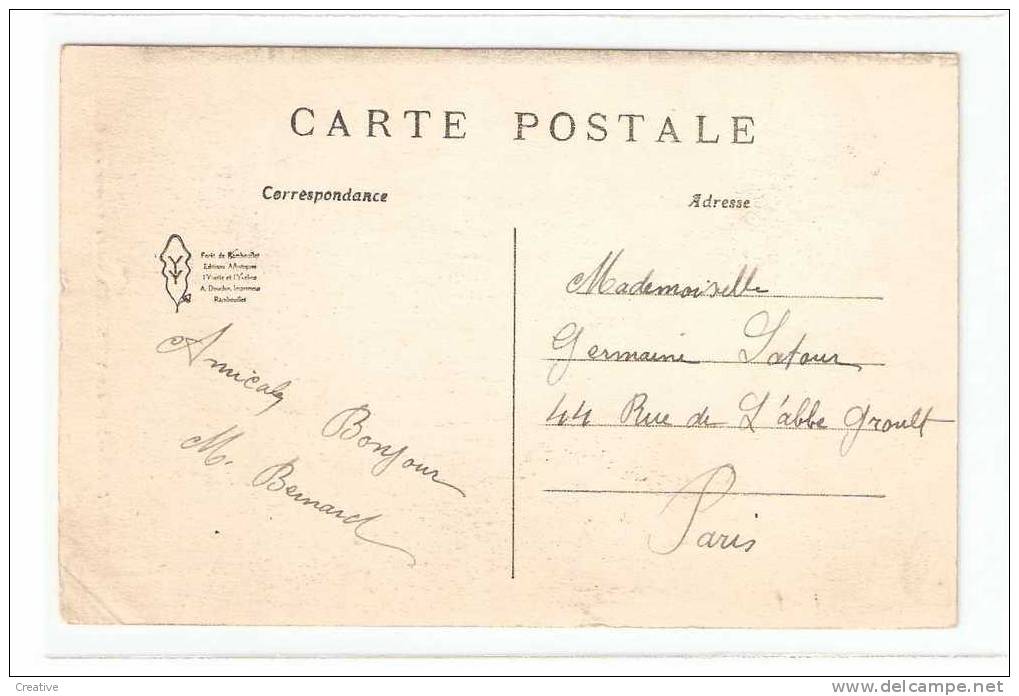 CARTE POSTALE
Correspondance
Adresse
Forêt de Rambouillet
Editions Artistiques
l'Yvette et l'Yveline
A. Douchin, Imprimeur
Rambouillet
Amicaly Bonjour
M. Bernard
Mademoiselle
Germaine Latour
44 Rue de L'abbe Groult
Paris
Creative
www.delcampe.net